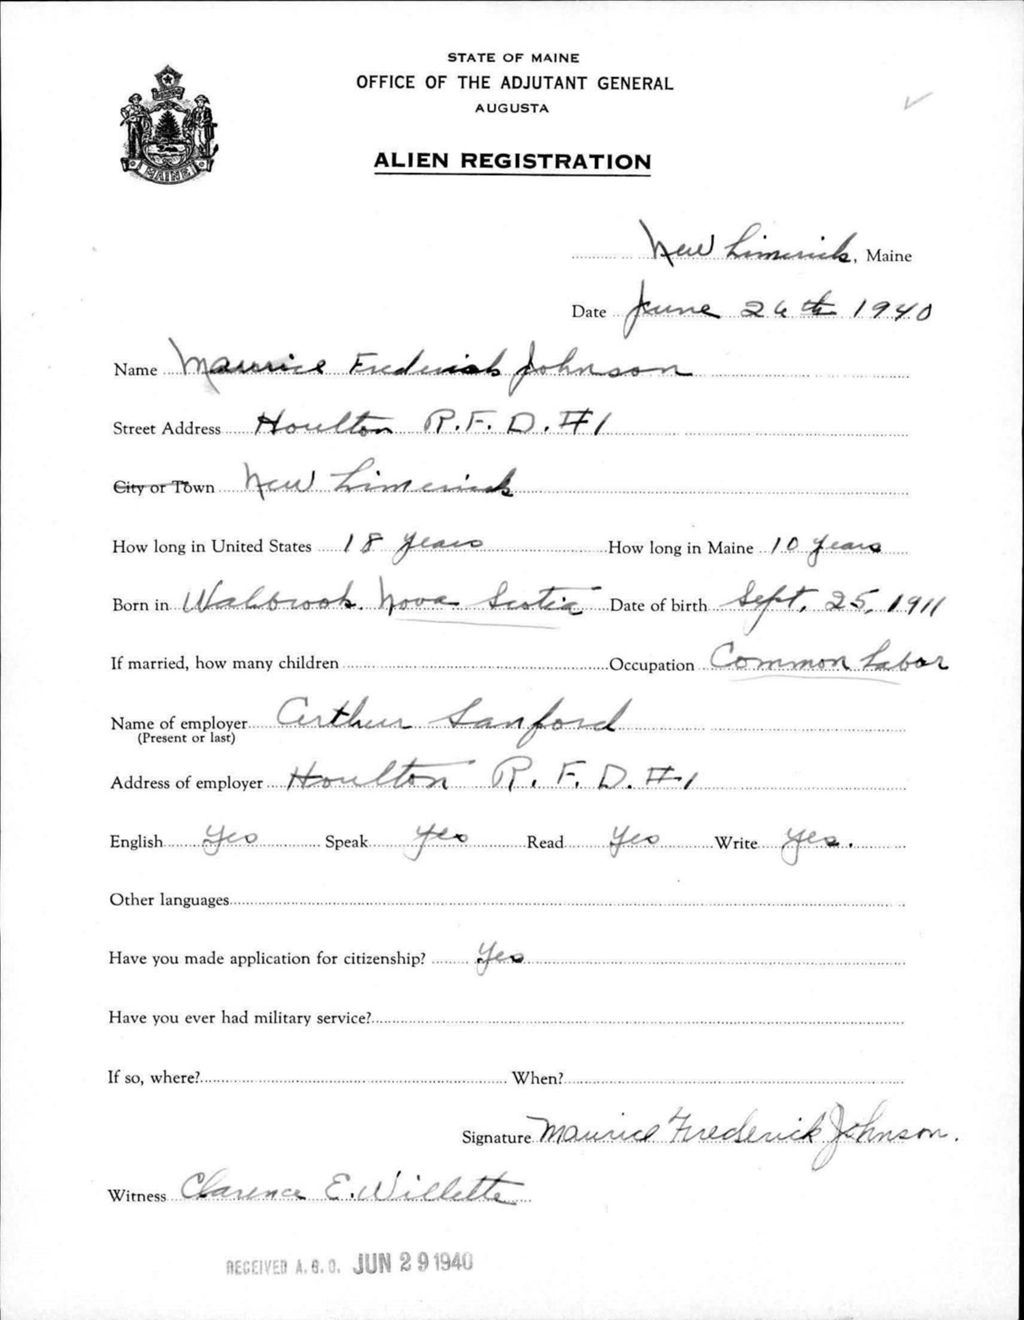 STATE OF MAINE
OFFICE OF THE ADJUTANT GENERAL
AUGUSTA
ALIEN REGISTRATION
MAINE
New Limerick, Maine
Date June 26th 1940
Name Maurice Frederick Johnson
Street Address Houlton R.F.D. #1
City or Town New Limerick
How long in United States 18 years How long in Maine 10 years
Born in Walbrook, Nova Scotia Date of birth Sept. 25, 1911
If married, how many children Occupation Common Labor
Name of employer Arthur Sanford
(Present or last)
Address of employer Houlton R.F.D. #1
English Yes Speak Yes Read Yes Write Yes.
Other languages
Have you made application for citizenship? Yes
Have you ever had military service?
If so, where? When?
Signature Maurice Frederick Johnson.
Witness Clarence E. Willette
RECEIVED A.G.O. JUN 29 1940